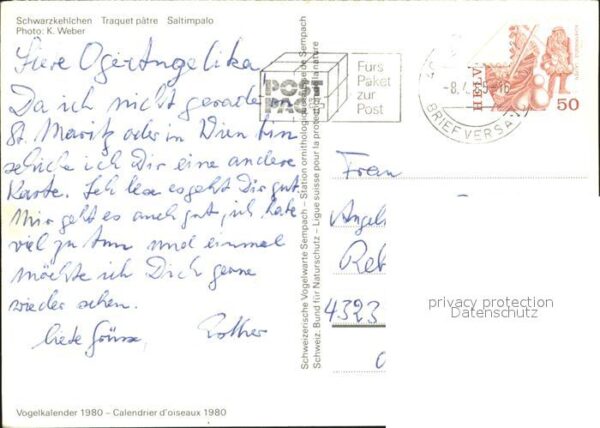 Schwarzkehlchen Traquet pâtre Saltimpalo
Photo: K. Weber
Da ich nicht gerade in
St. Moritz oder in Wien bin
schicke ich Dir eine andere
Karte. Ich lese es geht Dir gut.
Mir geht es auch gut, ich habe
viel zu tun und einmal
möchte ich Dich gerne
wieder sehen.
liebe Grüsse,
Vogelkalender 1980 – Calendrier d'oiseaux 1980
Schweizerische Vogelwarte Sempach – Station ornithologique suisse de Sempach
Schweiz. Bund für Naturschutz – Ligue suisse pour la protection de la nature
POST
PAC
Fürs
Paket
zur
Post
BRIEFVERSA
HELVETIA
50
Frau
Angel
Reb
4323
privacy protection
Datenschutz